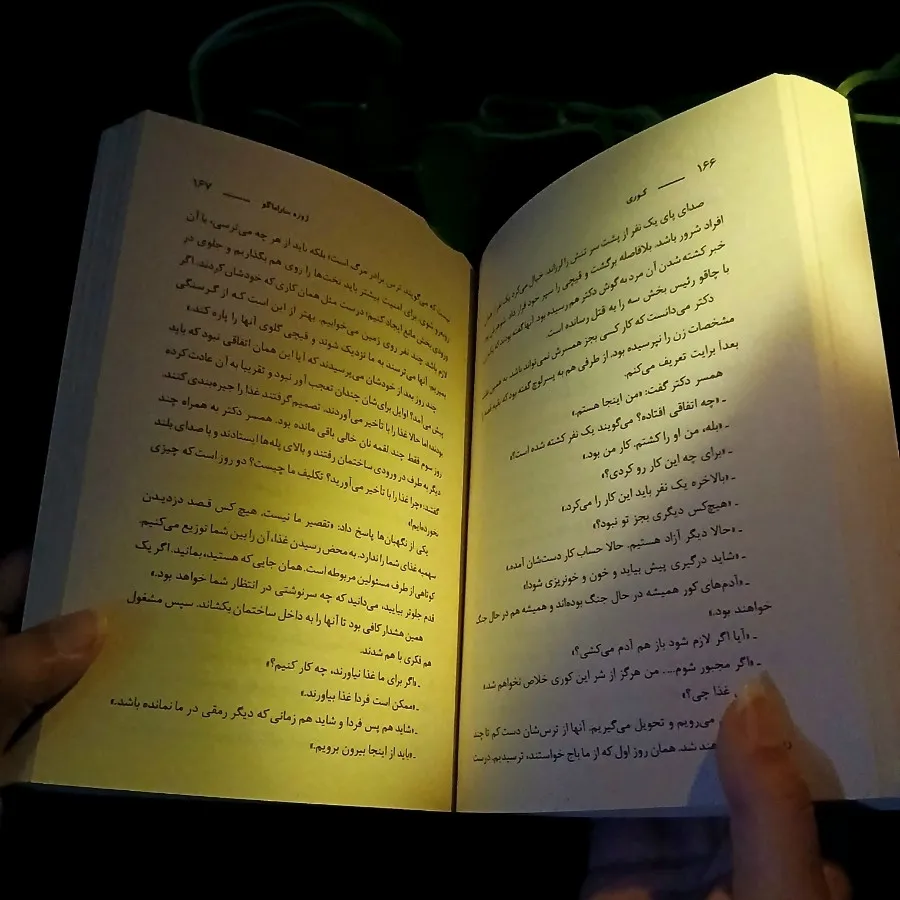 ۱۶۶ — کوری
صدای پای یک نفر از پشت سر تنش را لرزاند. خیال می‌کرد یک نفر از همان
افراد شرور باشد. بلافاصله برگشت و قیچی را سپر خود قرار داد.
خبر کشته شدن آن مرد به گوش دکتر هم رسیده بود. آنها گفته بودند که یک زن
با چاقو رئیس بخش سه را به قتل رسانده است.
دکتر می‌دانست که کار کسی بجز همسرش نمی‌تواند باشد. به همین
مشخصات زن را نپرسیده بود. از طرفی هم به پسر لوچ گفته بود که بقیه
بعداً برایت تعریف می‌کنم.
همسر دکتر گفت: «من اینجا هستم.»
ـ «چه اتفاقی افتاده؟ می‌گویند یک نفر کشته شده است؟»
ـ «بله، من او را کشتم. کار من بود.»
ـ «برای چه این کار رو کردی؟»
ـ «بالاخره یک نفر باید این کار را می‌کرد.»
ـ «هیچ‌کس دیگری بجز تو نبود؟»
ـ «حالا دیگر آزاد هستیم. حالا حساب کار دست‌شان آمده.»
ـ «شاید درگیری پیش بیاید و خون و خونریزی شود!»
ـ «آدم‌های کور همیشه در حال جنگ بوده‌اند و همیشه هم در حال جنگ
خواهند بود.»
ـ «آیا اگر لازم شود باز هم آدم می‌کشی؟»
ـ «اگر مجبور شوم... من هرگز از شر این کوری خلاص نخواهم شد.»
غذا چی؟»
می‌رویم و تحویل می‌گیریم. آنها از ترس‌شان دست کم تا چند
شد. همان روز اول که از ما باج خواستند، ترسیدیم. درست
ژوزه ساراماگو — ۱۶۷
نیست که می‌گویند ترس برادر مرگ است؛ بلکه باید از هر چه می‌ترسی، با آن
روبه‌رو شوی. برای امنیت بیشتر باید تخت‌ها را روی هم بگذاریم و جلوی در
ورودی بخش مانع ایجاد کنیم؛ درست مثل همان کاری که خودشان کردند. اگر
لازم باشد، چند نفر روی زمین می‌خوابیم. بهتر از این است که از گرسنگی
بمیریم. آنها می‌ترسند به ما نزدیک شوند و قیچی گلوی آنها را پاره کند.»
چند روز بعد از خودشان می‌پرسیدند که آیا این همان اتفاقی نبود که باید
پیش می‌آمد؟ اوایل برای‌شان چندان تعجب آور نبود و تقریبا به آن عادت کرده
بودند؛ اما حالا غذا را با تأخیر می‌آوردند. تصمیم گرفتند غذا را جیره‌بندی کنند.
روز سوم فقط چند لقمه نان خالی باقی مانده بود. همسر دکتر به همراه چند
دیگر به طرف در ورودی ساختمان رفتند و بالای پله‌ها ایستادند و با صدای بلند
گفتند: «چرا غذا را با تأخیر می‌آورید؟ تکلیف ما چیست؟ دو روز است که چیزی
نخورده‌ایم!»
یکی از نگهبان‌ها پاسخ داد: «تقصیر ما نیست. هیچ کس قصد دزدیدن
سهمیه غذای شما را ندارد. به محض رسیدن غذا، آن را بین شما توزیع می‌کنیم.
کوتاهی از طرف مسئولین مربوطه است. همان جایی که هستید، بمانید. اگر یک
قدم جلوتر بیایید، می‌دانید که چه سرنوشتی در انتظار شما خواهد بود.»
همین هشدار کافی بود تا آنها را به داخل ساختمان بکشاند. سپس مشغول
هم فکری با هم شدند.
ـ «اگر برای ما غذا نیاورند، چه کار کنیم؟»
ـ «ممکن است فردا غذا بیاورند.»
ـ «شاید هم پس فردا و شاید هم زمانی که دیگر رمقی در ما نمانده باشد.»
ـ «باید از اینجا بیرون برویم.»